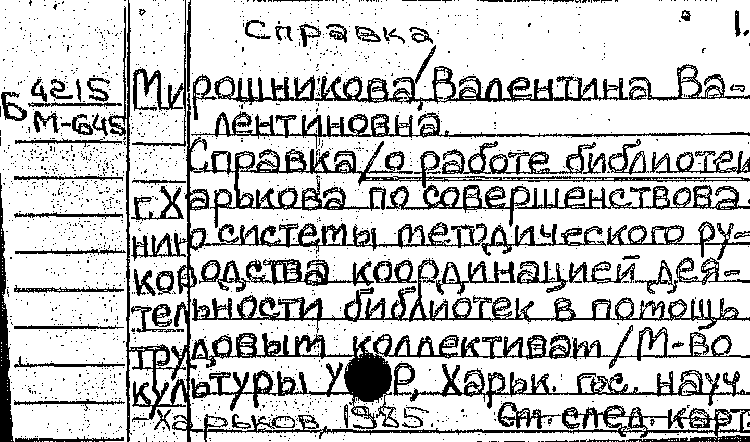 Справка 1.
Б 4215 Мирошникова, Валентина Ва-
М-645 лентиновна.
Справка /о работе библиотек
г. Харькова по совершенствова-
нию системы методического ру-
ководства координацией дея-
тельности библиотек в помощь
трудовым коллективам/ М-во
культуры Харьк. гос. науч.
- Харьков, 1985. См. след. карт